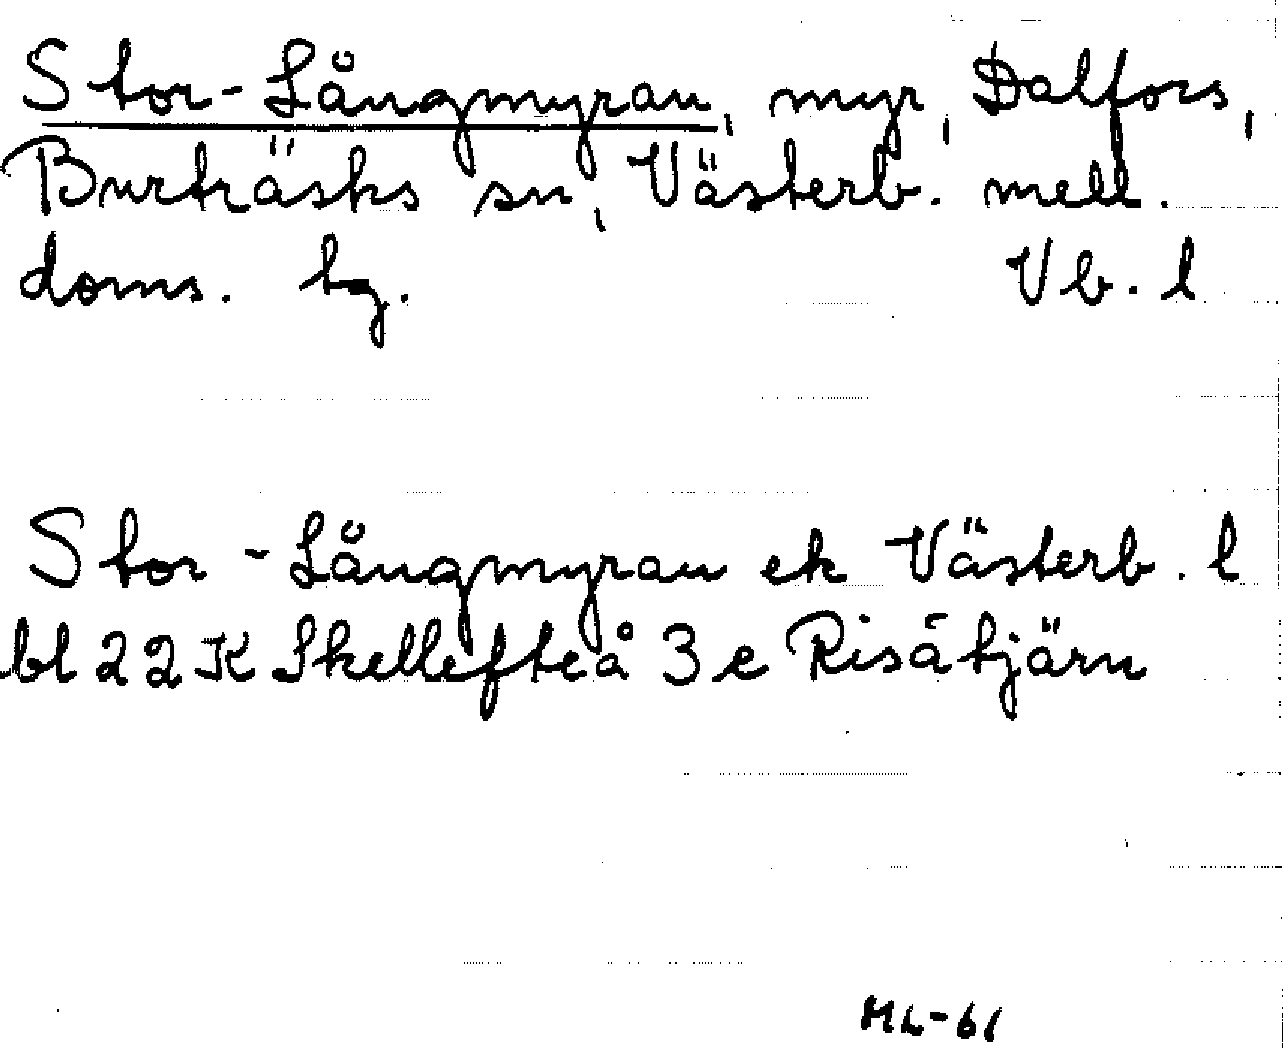 Stor-Långmyran, myr, Dalfors,
Burträsks sn, Västerb. mell.
doms. tg. Vb. l
Stor-Långmyran ek Västerb. l
bl 22 K Skellefteå 3 e Risåtjärn
ML-61